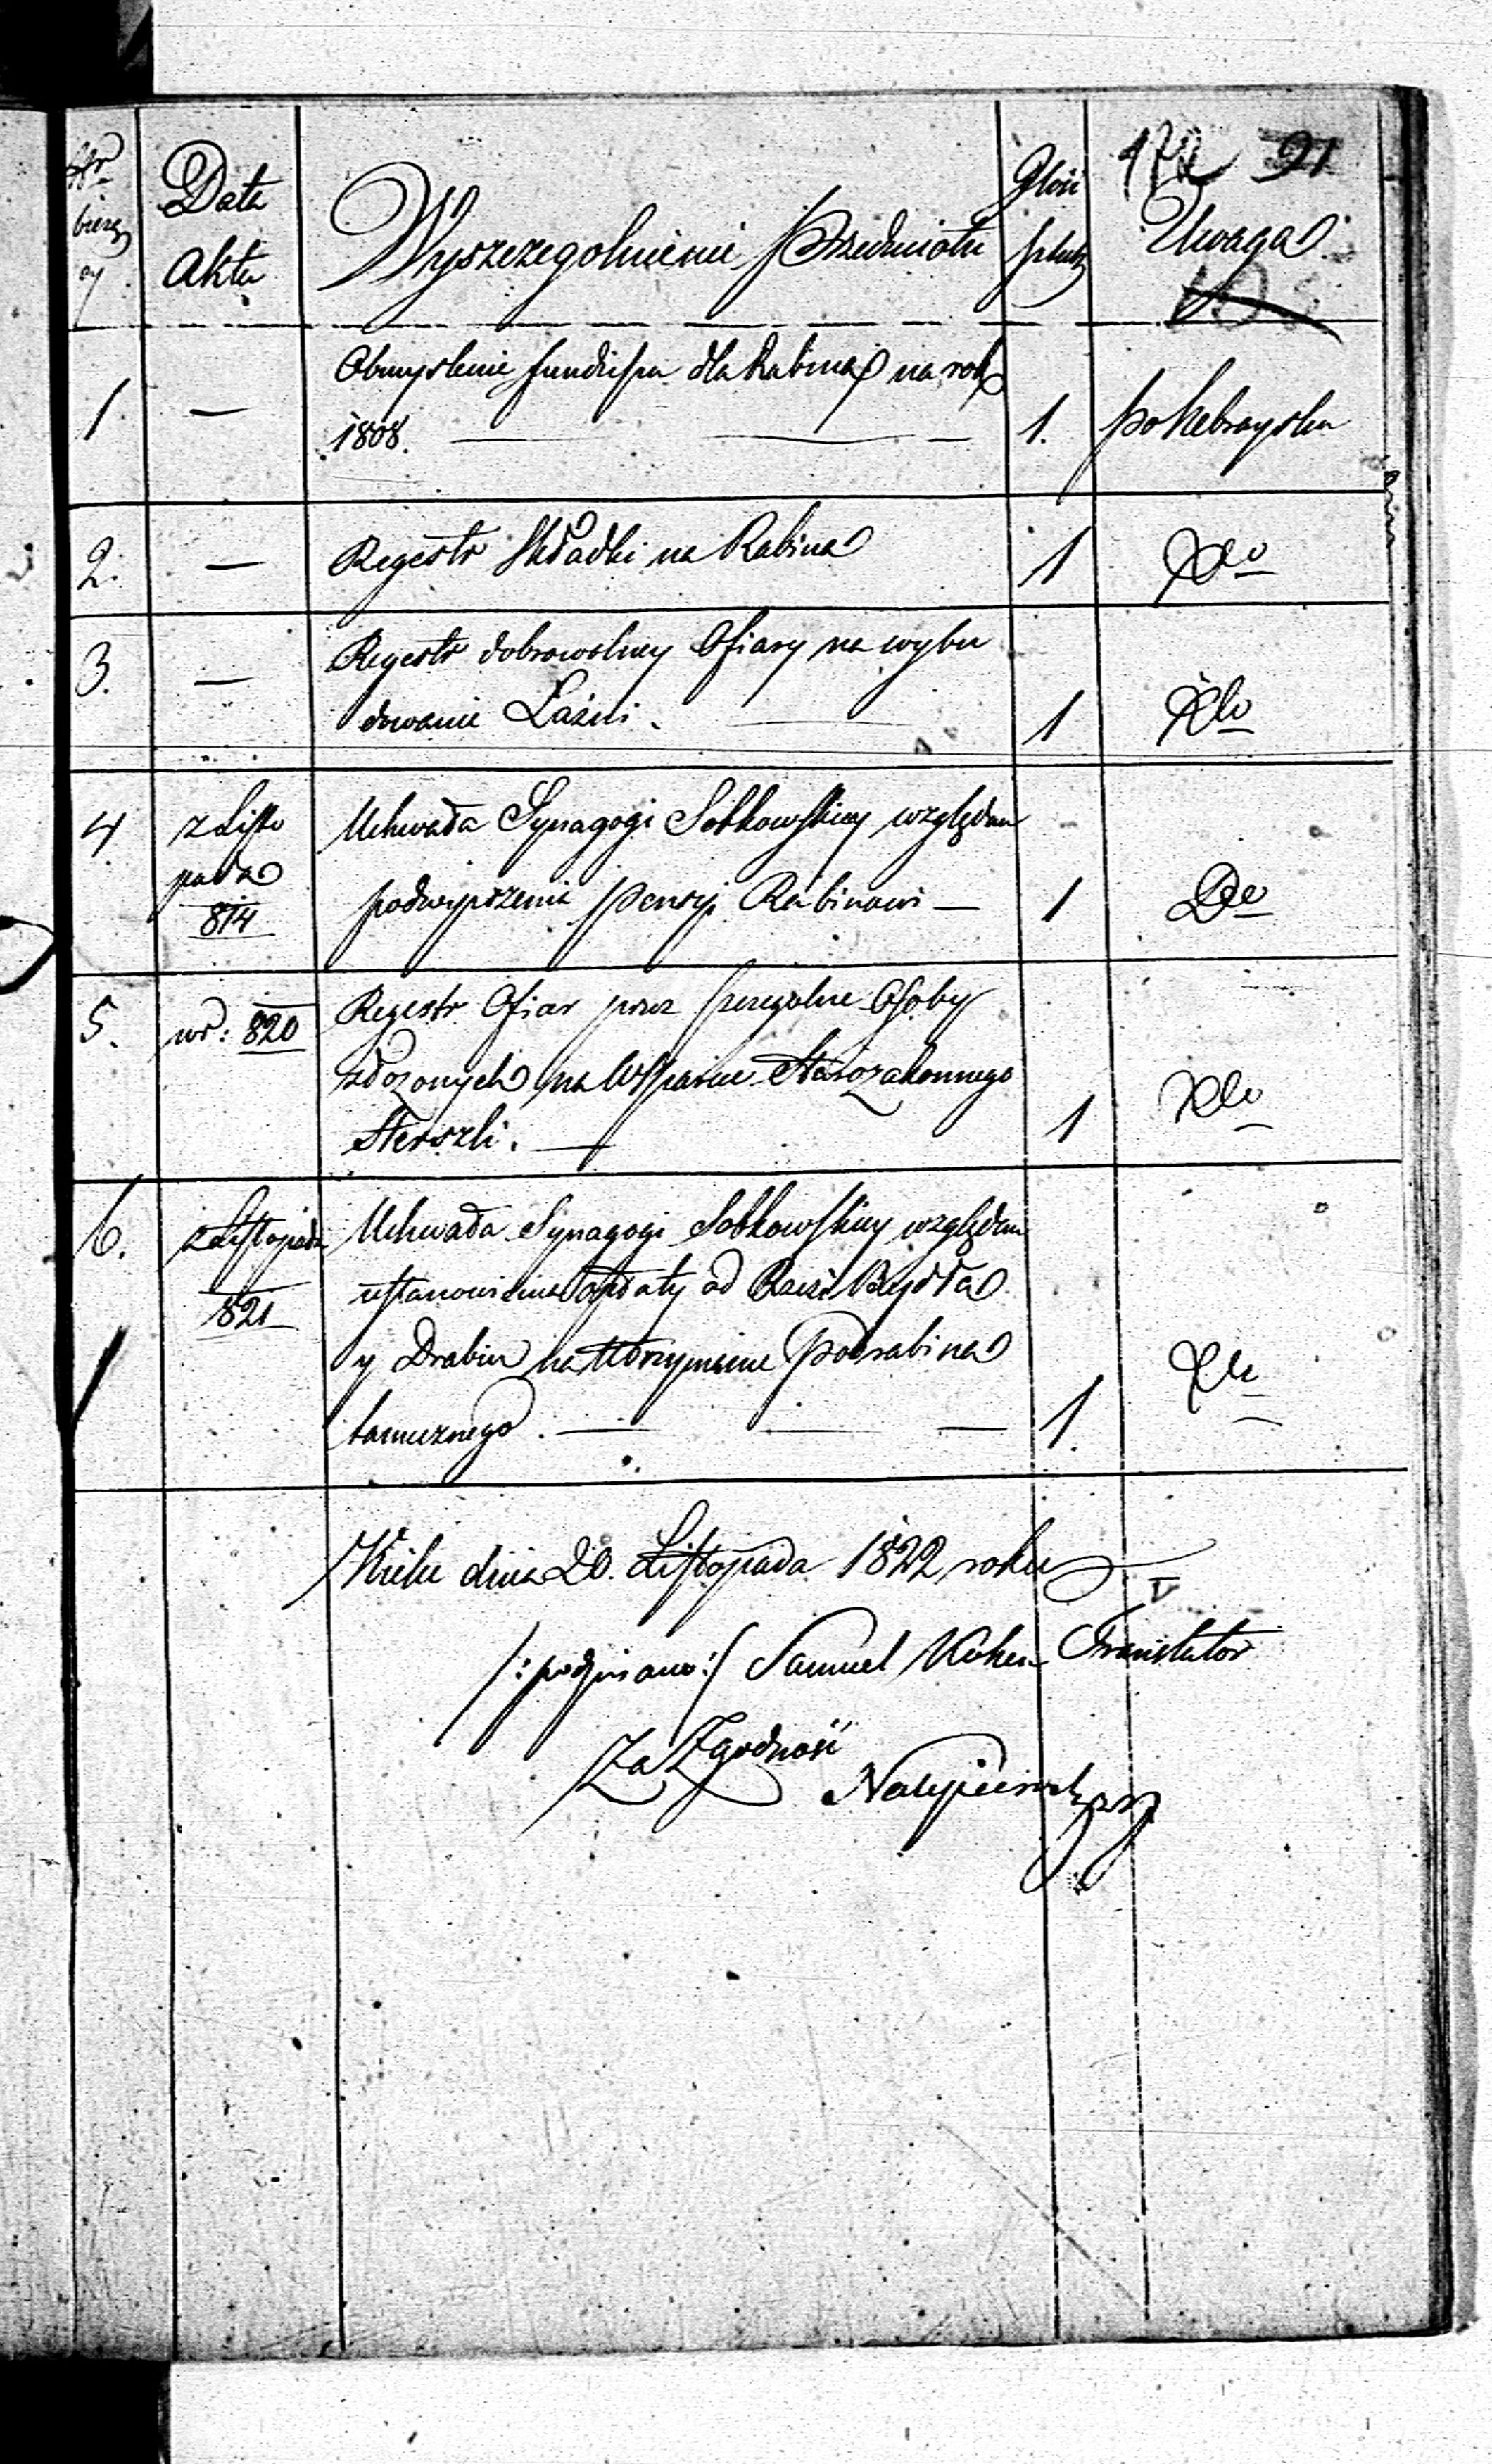 91
Nr
bieżą
cy
Data
Aktu
Wyszczegolnienie Przedmiotu
Ilość
sztuk
Uwaga
1.
—
Obmyslenie funduszu dla Rabina na rok
1808. — — —
1.
po hebraysku
2.
—
Regestr składki na Rabina
1
Dto
3.
—
Regestr dobrowolney Ofiary na wybu
dowanie Łaźni.
1
Dto
4
z Listo
pada
814
Uchwała Synagogi Sobkowskiey względem
podwyższenia Pensyi Rabinowi —
1
Dto
5.
w r: 820
Regestr Ofiar przez szczegolne Osoby
złożonych na Wsparcie Starozakonnego
Herszli. —
1
Dto
6.
z Listopada
821
Uchwała Synagogi Sobkowskiey względem
ustanowienia opłaty od Rzezi Bydła
y Drobiu na utrzymanie Podrabina
tamecznego. — — —
1.
Dto
Kielce dnia 20. Listopada 1822 roku
/: podpisano :/ Samuel Kohen Translator
Za Zgodność